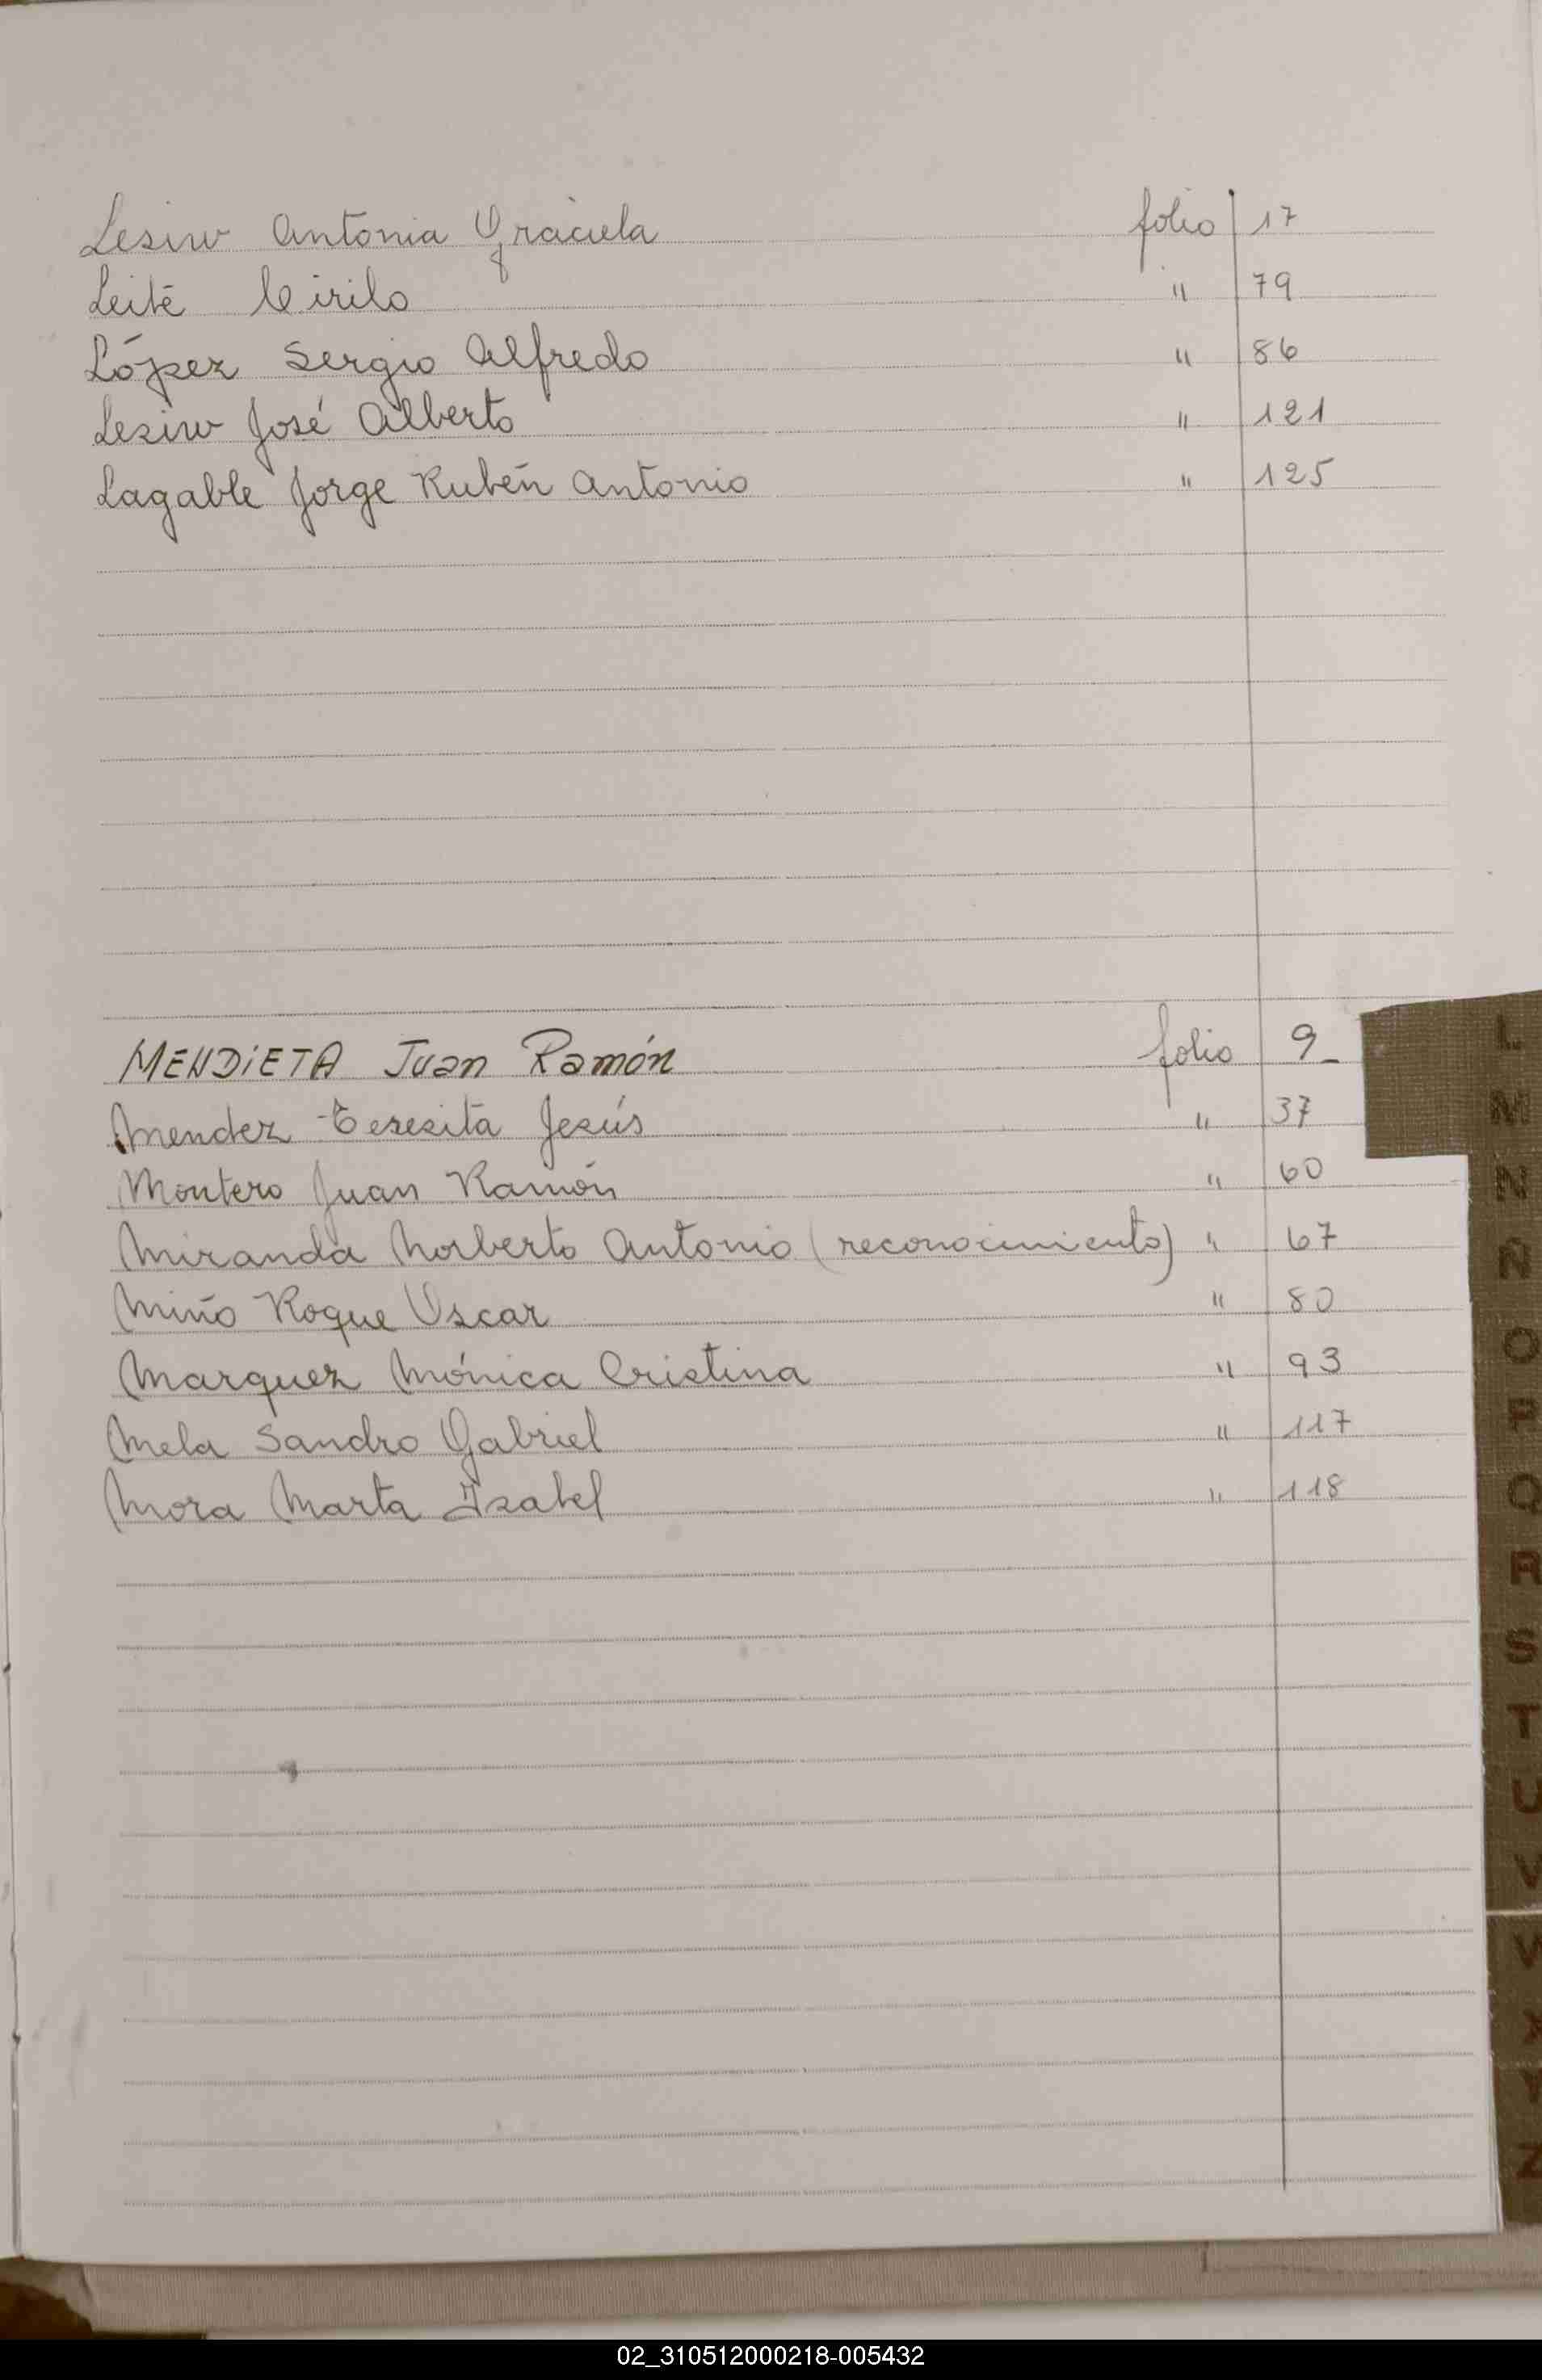 Lesiw Antonia Graciela folio 17
Leite Cirilo " 79
López Sergio Alfredo " 86
Lesiw José Alberto " 121
Lagable Jorge Rubén Antonio " 125
MENDiETA Juan Ramón folio 9-
Mendez Teresita Jesús " 37
Montero Juan Ramón " 60
Miranda Norberto Antonio (reconocimiento) " 67
Miño Roque Oscar " 80
Marquez Mónica Cristina " 93
Mela Sandro Gabriel " 117
Mora Marta Isabel " 118
L
M
N
Ñ
O
P
Q
R
S
T
U
V
W
X
Y
Z
02_310512000218-005432